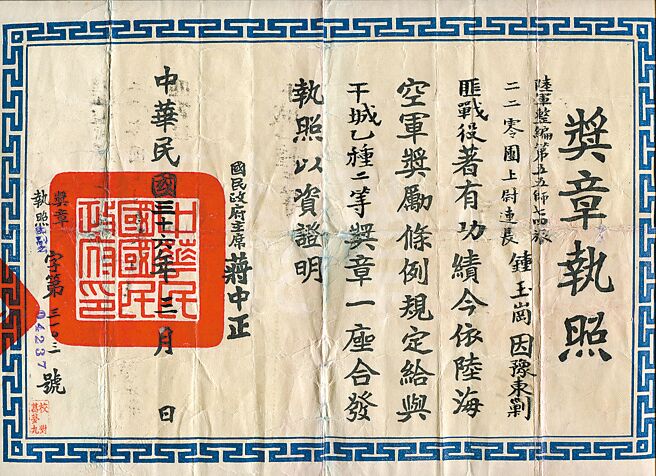 獎章執照
陸軍整編第五五師七四旅
二二零團上尉連長 鍾玉崗 因豫東剿
匪戰役著有功績今依陸海
空軍獎勵條例規定給與
干城乙種二等獎章一座合發
執照以資證明
國民政府主席 蔣中正
中華民國三十六年三月 日
中華民國國民政府印
獎章執照 字第三一〇三號
04237
校對